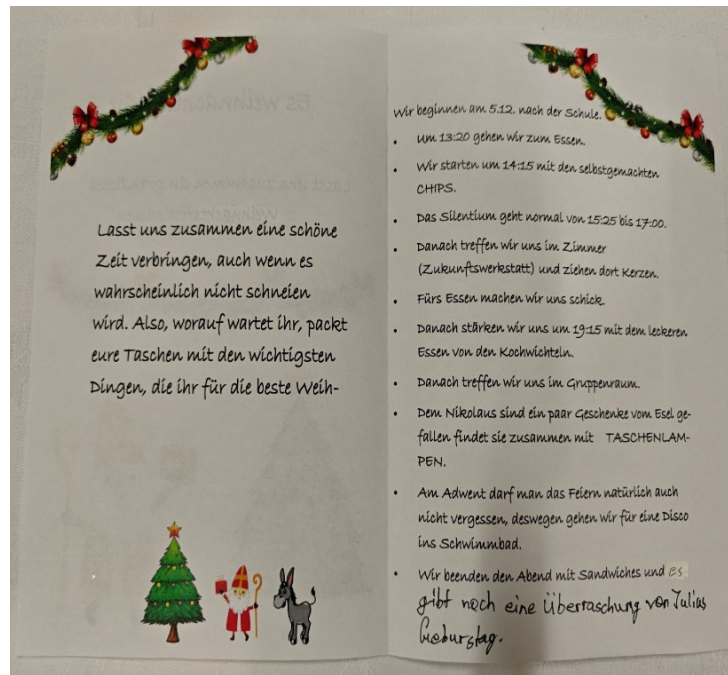 Lasst uns zusammen eine schöne
Zeit verbringen, auch wenn es
wahrscheinlich nicht schneien
wird. Also, worauf wartet ihr, packt
eure Taschen mit den wichtigsten
Dingen, die ihr für die beste Weih-
Wir beginnen am 5.12. nach der Schule.
• Um 13:20 gehen wir zum Essen.
• Wir starten um 14:15 mit den selbstgemachten
CHIPS.
• Das Silentium geht normal von 15:25 bis 17:00.
• Danach treffen wir uns im Zimmer
(Zukunftswerkstatt) und ziehen dort Kerzen.
• Fürs Essen machen wir uns schick.
• Danach stärken wir uns um 19:15 mit dem leckeren
Essen von den Kochwichteln.
• Danach treffen wir uns im Gruppenraum.
• Dem Nikolaus sind ein paar Geschenke vom Esel ge-
fallen findet sie zusammen mit TASCHENLAM-
PEN.
• Am Adwent darf man das Feiern natürlich auch
nicht vergessen, deswegen gehen wir für eine Disco
ins Schwimmbad.
• Wir beenden den Abend mit Sandwiches und es
gibt noch eine Überraschung von Julius
Geburstag.